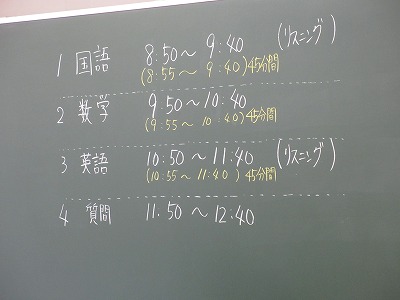 1 国語 8:50〜9:40 (リスニング)
(8:55〜9:40)45分間
2 数学 9:50〜10:40
(9:55〜10:40)45分間
3 英語 10:50〜11:40 (リスニング)
(10:55〜11:40)45分間
4 質問 11:50〜12:40